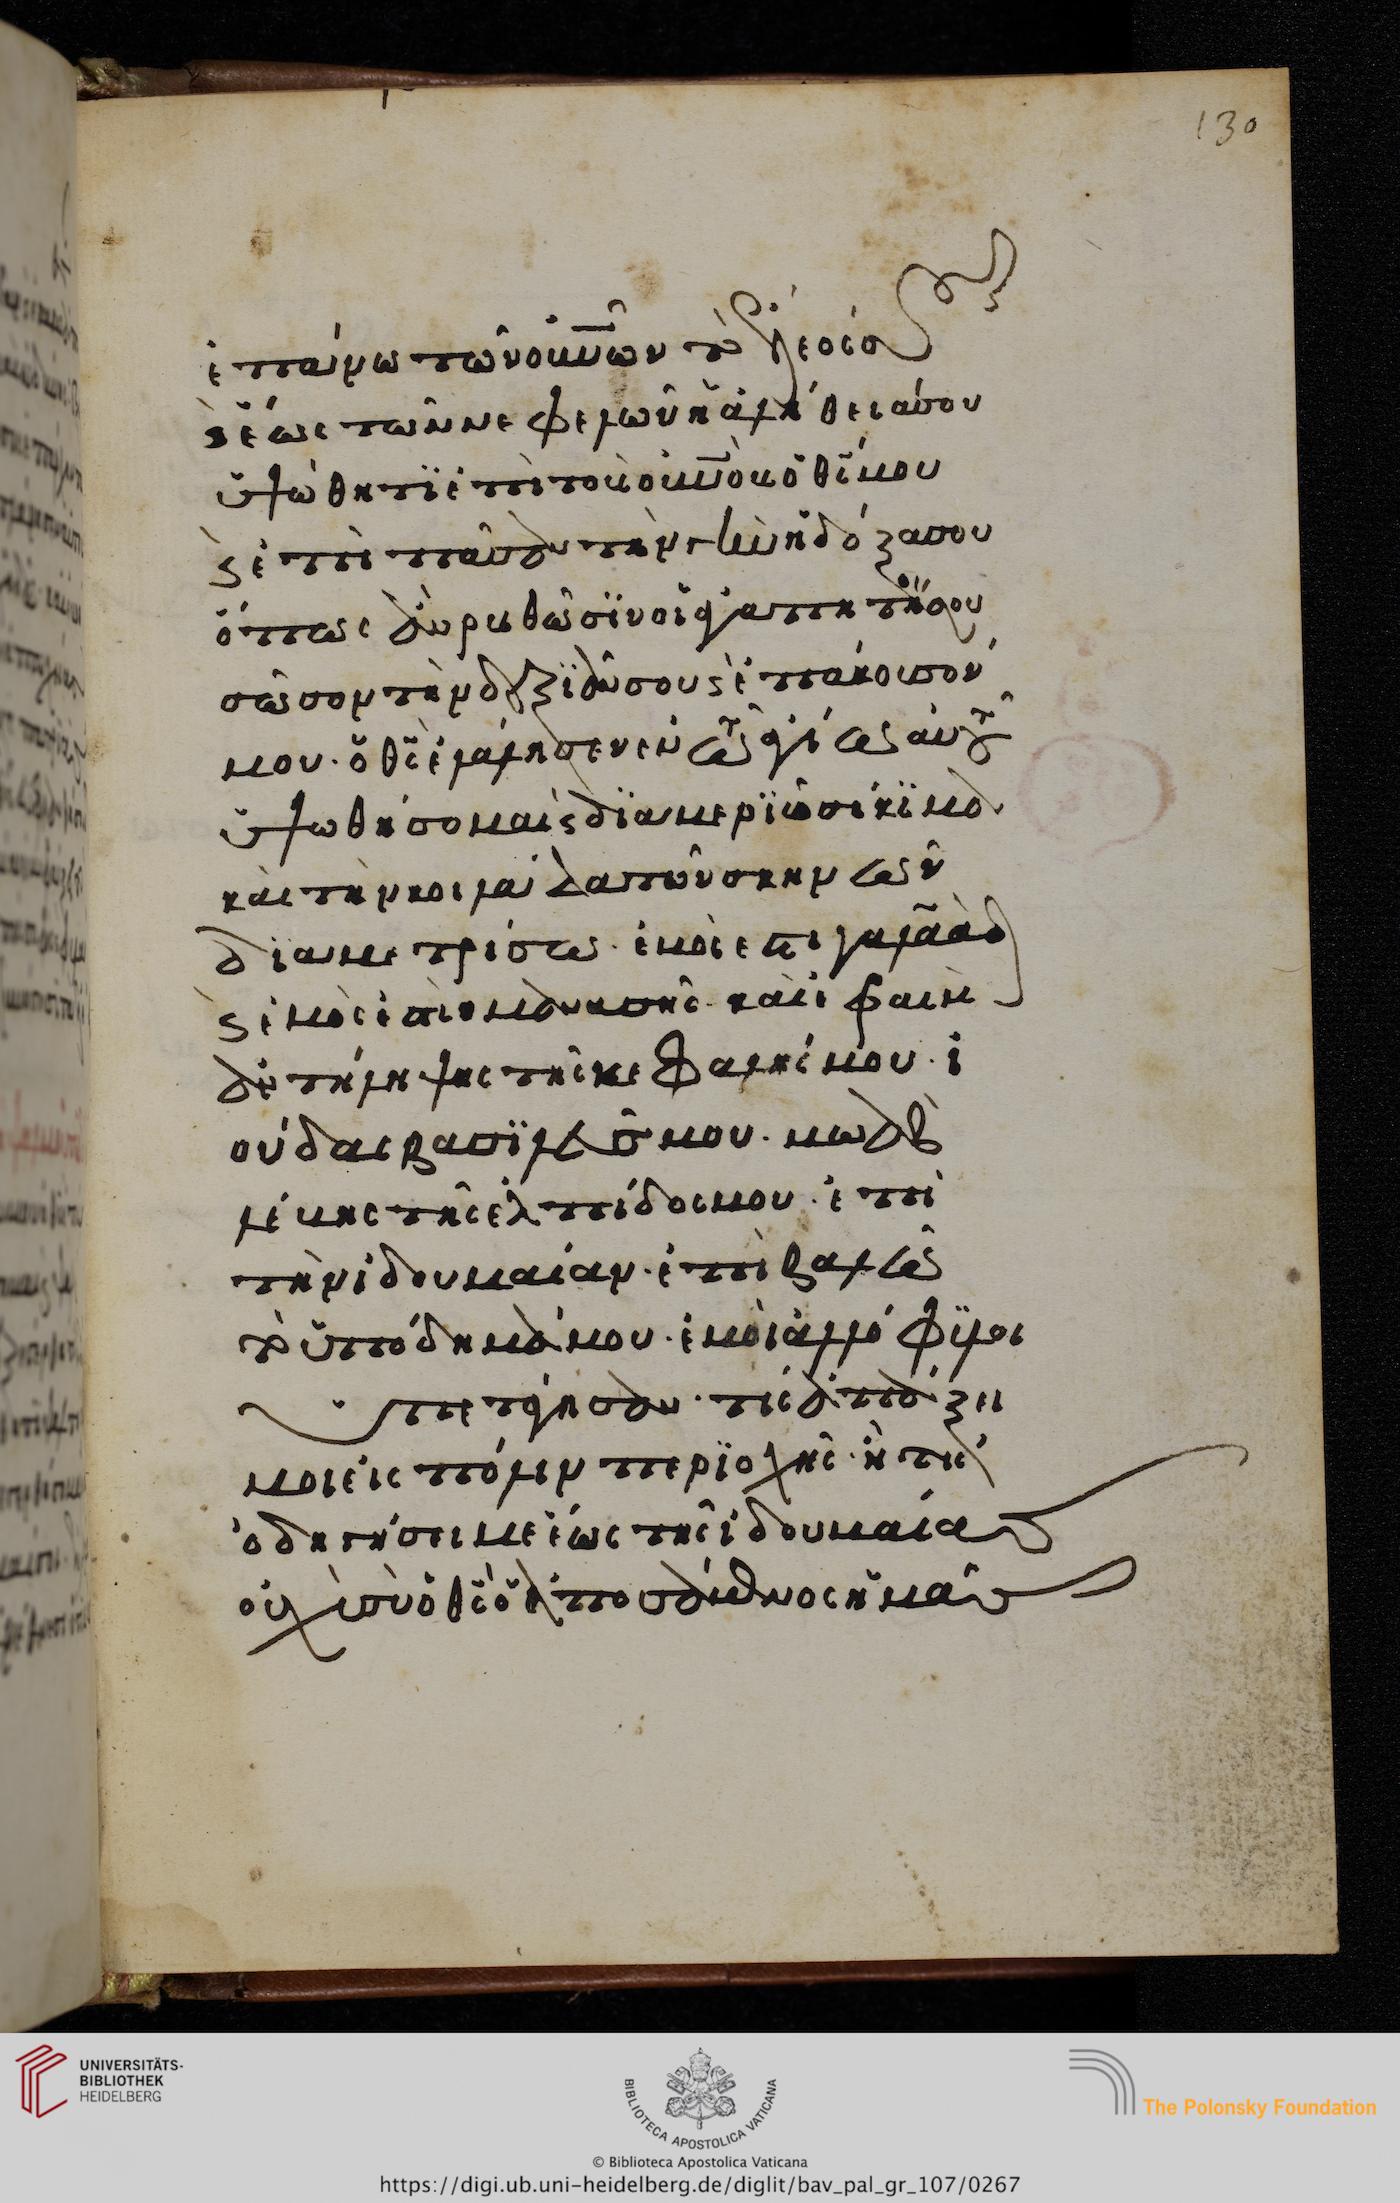 130
ἐπάνω τῶν οὐνῶν τὸ ἔλεός σου
ϛ ἕως τῶν νεφελῶν ἡ ἀλήθειά σου
ὑψώθητι ἐπὶ τοὺς οὐνοὺς ὁ θς μου
ϛ ἐπὶ πᾶσαν τὴν γῆν ἡ δόξα σου
ὅπως ἂν ρυσθῶσιν οἱ ἀγαπητοί σου
σῶσον τῇ δεξιᾷ σου ϛ ἐπάκουσόν
μου · ὁ θς ἐλάλησεν ἐν τῷ ἁγίω αὐτοῦ
ὑψωθήσομαι ϛ διαμεριῶ σίκιμα
καὶ τὴν κοιλάδα τῶν σκηνῶν
διαμετρίσω · ἐμός ἐστι γαλαὰδ
ϛ ἐμός ἐστι μανασσῆς · καὶ ἐφραὶμ
ἀντίληψις τῆς κεφαλῆς μου · ἰ
ούδας βασιλεύς μου · μωὰβ
λέβης τῆς ἐλπίδος μου · ἐπὶ
τὴν ἰδουμαίαν · ἐπιβαλῶ
τὸ ὑπόδημά μου · ἐμοὶ ἀλλόφυλοι
ὑπετάγησαν · τίς ἀπάξει
με εἰς πόλιν περιοχῆς · ἢ τίς
ὁδηγήσει με ἕως τῆς ἰδουμαίας
οὐχὶ σὺ ὁ θς ὁ ἀπωσάμενος ἡμᾶς
UNIVERSITÄTS-
BIBLIOTHEK
HEIDELBERG
BIBLIOTECA APOSTOLICA VATICANA
The Polonsky Foundation
© Biblioteca Apostolica Vaticana
https://digi.ub.uni-heidelberg.de/diglit/bav_pal_gr_107/0267